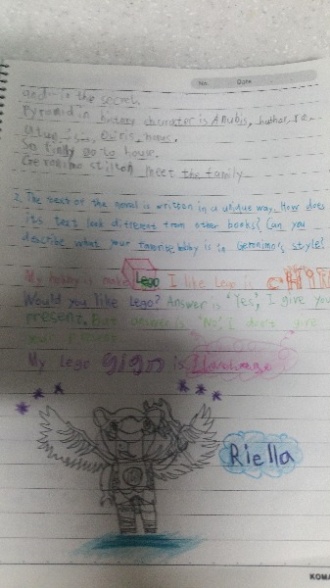 No. Date
and in the secret.
Pyramid in history character is Anubis,
So findy go to house.
Geronimo stilton meet the family.
2. The text of the novel is written in a unique way. How does
its text look different from other books? Can you
describe what your favorite hobby is in Geronimo's style?
My hobby is make Lego I like Lego is
Would you like Lego? Answer is 'Yes', I give you
present. But answer is 'No', I don't give
My lego sign is
Riella